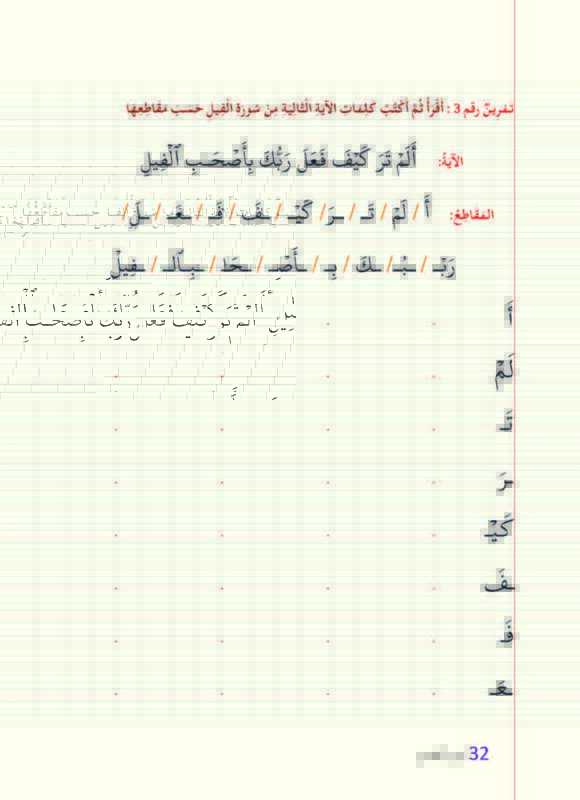 تمرين رقم 3 : أَقْرَأُ ثُمَّ أَكْتُبُ كَلِمَاتِ الْآيَةِ الْتَّالِيَةِ مِنْ سُورَةِ الْفِيلِ حَسَبَ مَقَاطِعِهَا
الآيَةُ: أَلَمْ تَرَ كَيْفَ فَعَلَ رَبُّكَ بِأَصْحَبِ ٱلْفِيلِ
المَقَاطِعُ: أَ / لَمْ / تَـ / ـرَ / كَيْـ / ـفَ / فَـ / ـعَـ / ـلَ /
رَبْـ / ـبُـ / ـكَ / بِـ / ـأَصْـ / ـحَـا / ـبِـٱلْـ / ـفِيلْ
أَ
لَمْ
تَـ
ـرَ
كَيْـ
ـفَ
فَـ
ـعَـ
32